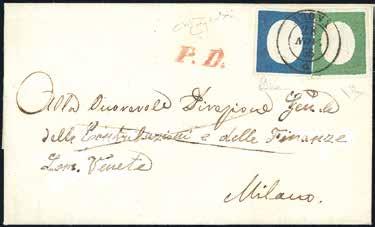 P. D.
Alla Onorevole Direzione Genle
delle Contribuzioni e delle Finanze
Lom. Venete
Milano.